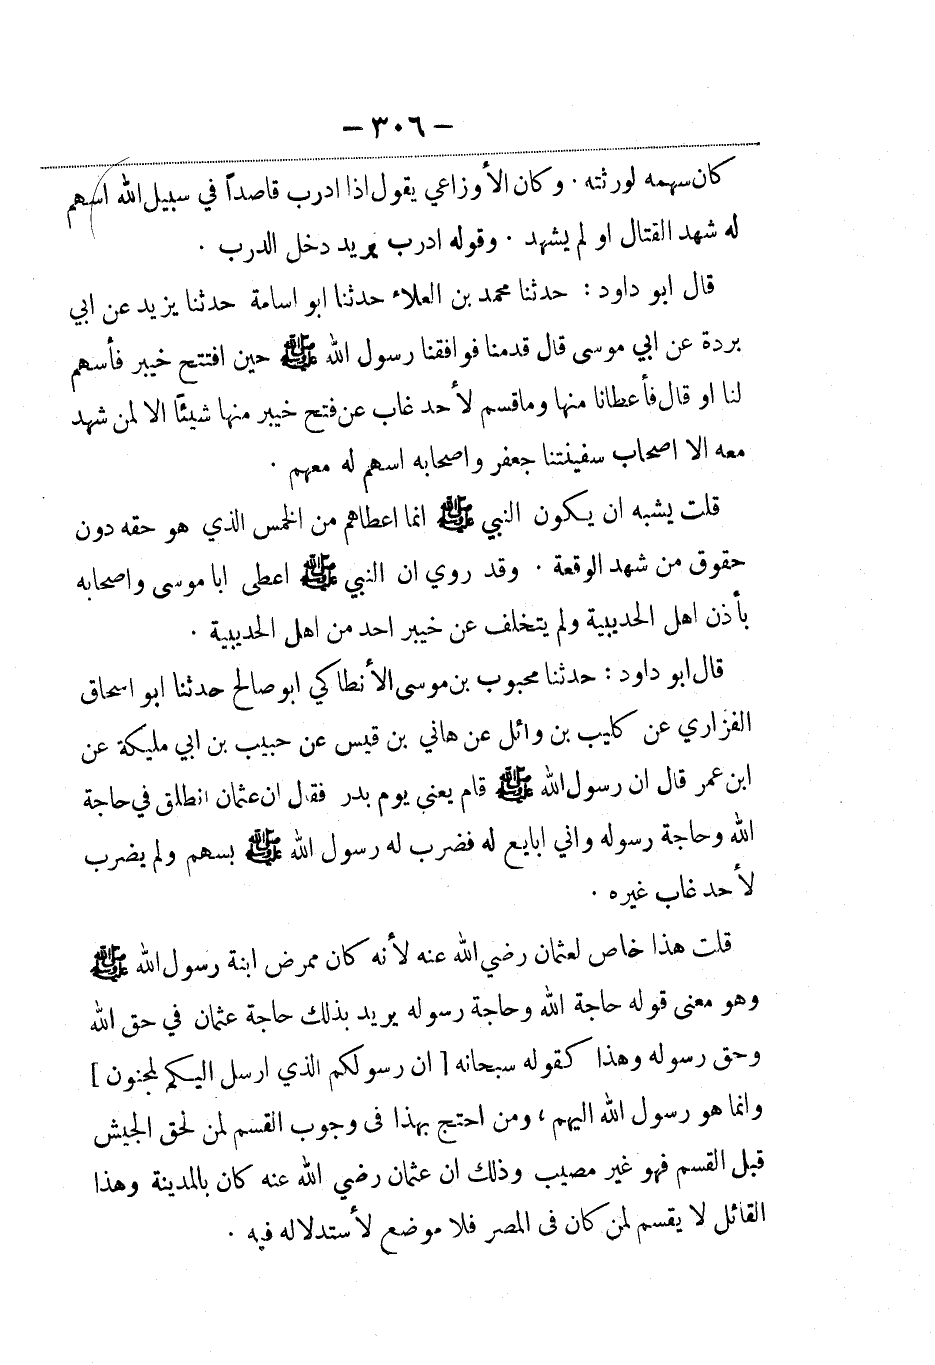 — ٣٠٦ —
كان سهمه لورثته . وكان الأوزاعي يقول اذا ادرب قاصداً في سبيل الله اسهم
له شهد القتال او لم يشهد . وقوله ادرب يريد دخل الدرب .
قال ابو داود : حدثنا محمد بن العلاء حدثنا ابو اسامة حدثنا يزيد عن ابي
بردة عن ابي موسى قال قدمنا فوافقنا رسول الله ﷺ حين افتتح خيبر فأسهم
لنا او قال فأعطانا منها وماقسم لأحد غاب عن فتح خيبر منها شيئًا الا لمن شهد
معه الا اصحاب سفينتنا جعفر واصحابه اسهم له معهم .
قلت يشبه ان يكون النبي ﷺ انما اعطاهم من الخمس الذي هو حقه دون
حقوق من شهد الوقعة . وقد روي ان النبي ﷺ اعطى ابا موسى واصحابه
بأذن اهل الحديبية ولم يتخلف عن خيبر احد من اهل الحديبية .
قال ابو داود : حدثنا محبوب بن موسى الأنطاكي ابو صالح حدثنا ابو اسحاق
الفزاري عن كليب بن وائل عن هاني بن قيس عن حبيب بن ابي مليكة عن
ابن عمر قال ان رسول الله ﷺ قام يعني يوم بدر فقال ان عثمان انطلق في حاجة
الله وحاجة رسوله واني ابايع له فضرب له رسول الله ﷺ بسهم ولم يضرب
لأحد غاب غيره .
قلت هذا خاص لعثمان رضي الله عنه لأنه كان ممرض ابنة رسول الله ﷺ
وهو معنى قوله حاجة الله وحاجة رسوله يريد بذلك حاجة عثمان في حق الله
وحق رسوله وهذا كقوله سبحانه [ ان رسولكم الذي ارسل اليكم لمجنون ]
وانما هو رسول الله اليهم ، ومن احتج بهذا فى وجوب القسم لمن لحق الجيش
قبل القسم فهو غير مصيب وذلك ان عثمان رضي الله عنه كان بالمدينة وهذا
القائل لا يقسم لمن كان فى المصر فلا موضع لأستدلاله فيه .